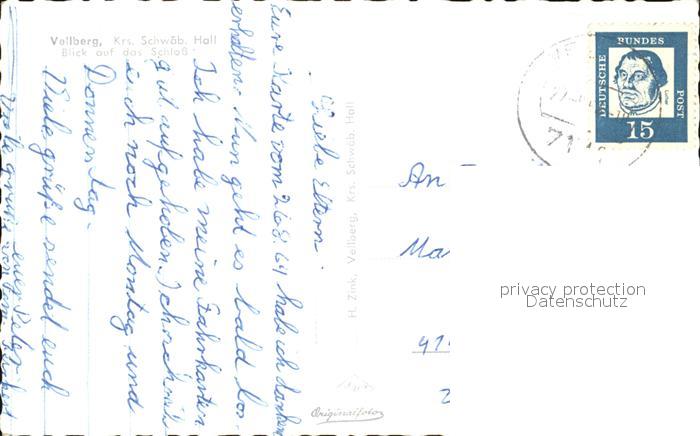 Vellberg, Krs. Schwäb. Hall
Blick auf das Schloß
Liebe Eltern.
Eure Karte vom 26.8.64 habe ich danken
erhalten. Nun geht es bald los.
Ich habe meine Fahrkarten
gut aufgehoben. Ich
noch Montag und
Donnerstag.
Viele grüße sendet euch
euer Peter
H. Zink, Vellberg, Krs. Schwäb. Hall
Originalfoto
DEUTSCHE
BUNDES
POST
Luther
15
71
An
Ma
privacy protection
Datenschutz